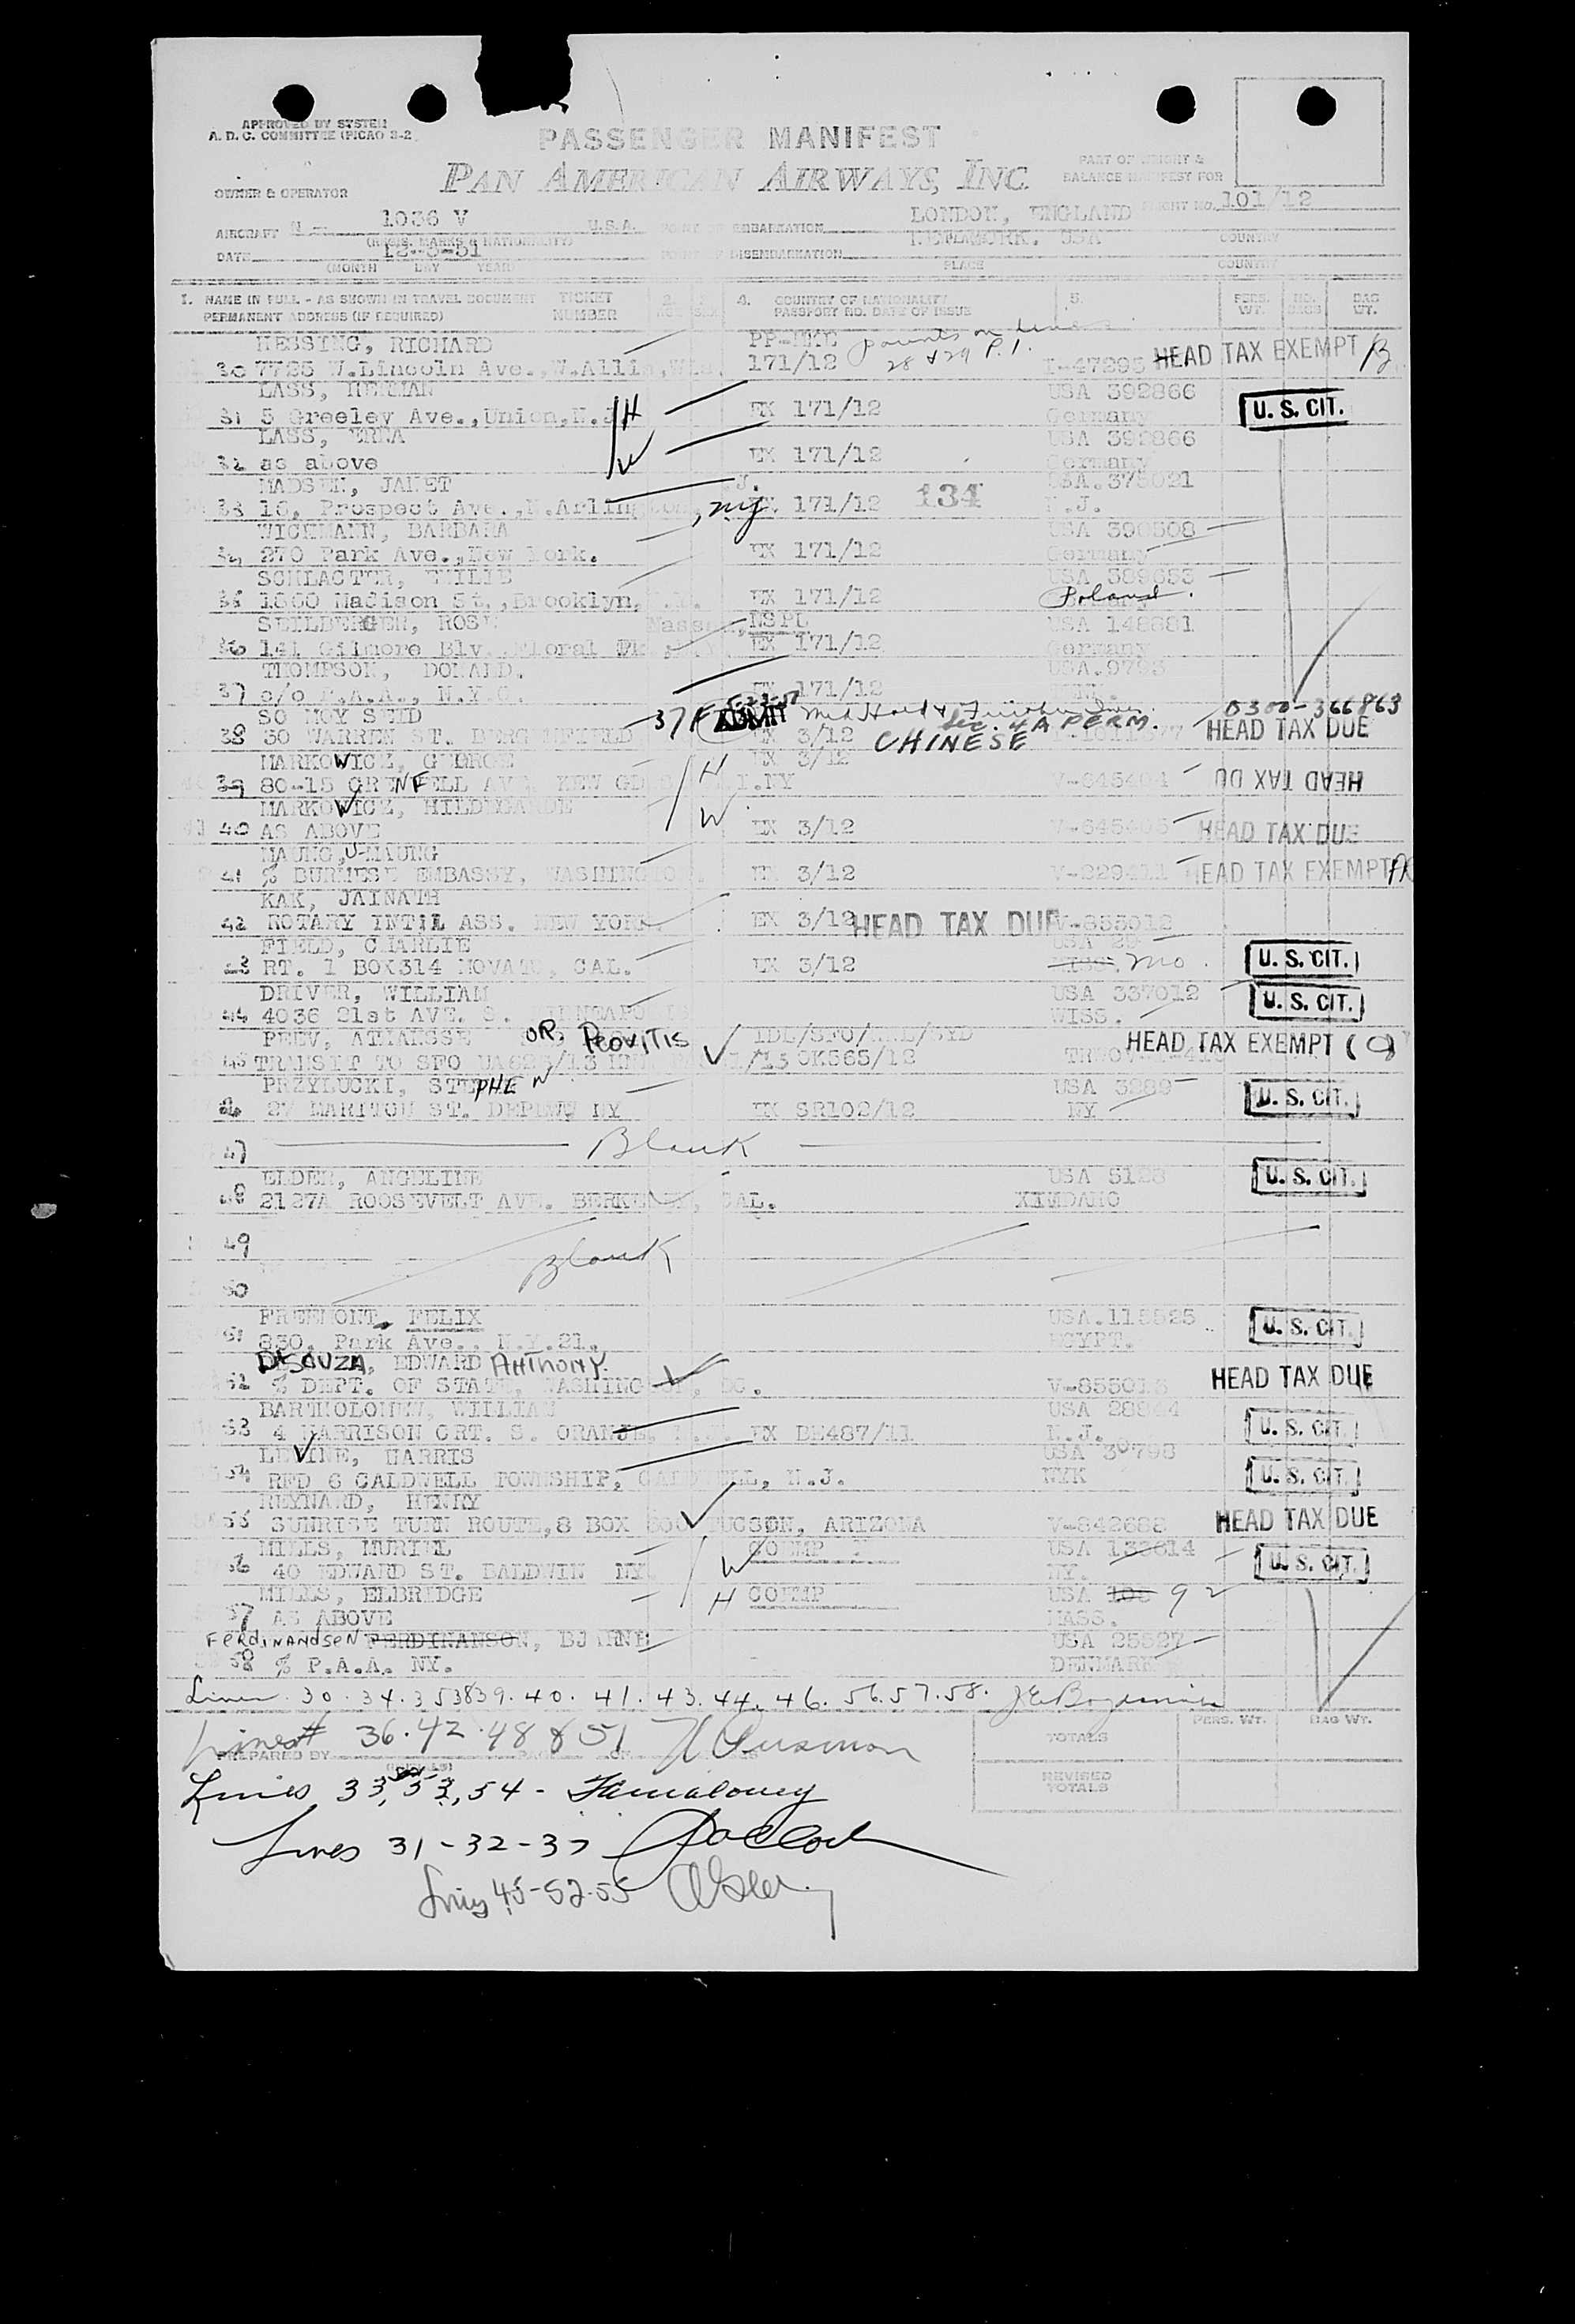 APPROVED BY SYSTEM
A. D. C. COMMITTEE (PICAO) S-2
PASSENGER MANIFEST
PAN AMERICAN AIRWAYS, INC.
PART OF WEIGHT &
BALANCE MANIFEST FOR
OWNER & OPERATOR
FLIGHT NO. 101/12
AIRCRAFT N - 1036 V U.S.A. POINT OF EMBARKATION LONDON, ENGLAND
(REGIS. MARKS & NATIONALITY) COUNTRY
DATE 12-3-51 POINT OF DISEMBARKATION NEWYORK. USA
(MONTH DAY YEAR) PLACE COUNTRY
1. NAME IN FULL - AS SHOWN IN TRAVEL DOCUMENT TICKET 2. 3. 4. COUNTRY OF NATIONALITY 5. PERS. NO. BAG
PERMANENT ADDRESS (IF REQUIRED) NUMBER AGE SEX PASSPORT NO. DATE OF ISSUE WT. BAGS WT.
HESSING, RICHARD parents on lines
30 7725 W.Lincoln Ave., W.Allis, Wis. 171/12 28 & 29 P.1. I-47295 HEAD TAX EXEMPT
LASS, HERMAN USA 392866
31 5 Greeley Ave.,Union,N.J H EX 171/12 Germany U. S. CIT.
LASS, ERNA USA 392866
32 as above W EX 171/12 Germany
MADSEN, JANET J. USA.375021
33 15, Prospect Ave.,N.Arlington, NJ EX 171/12 134 N.J.
WICHMANN, BARBARA USA 390508
34 270 Park Ave.,New York. EX 171/12 Germany
SCHLACTER, EMILIE
35 1860 Madison St.,Brooklyn, N.Y. EX 171/12 Poland.
ROSE Nassau, NSPL USA 148881
36 141 Gilmore Blv. Floral Pk., N.Y. EX 171/12 Germany
THOMPSON, DONALD. USA.9793
37 c/o P.A.A., N.Y.C. EX 171/12
SO MOY SEID 37 F ADMIT 0300-366863
38 30 WARREN ST. BERGENFIELD EX 3/12 CHINESE PERM. HEAD TAX DUE
MARKOWICZ, GEORGE EX 3/12
39 80-15 GRENFELL AVE KEW GDS H L.I.NY V-645404 HEAD TAX DU
MARKOWICZ, HILDEGARDE
40 AS ABOVE W EX 3/12 V-645405 HEAD TAX DUE
MAUNG, U-MAUNG
41 % BURMESE EMBASSY, WASHINGTON EX 3/12 V-229411 HEAD TAX EXEMPT
KAK, JAINATH
42 ROTARY INTIL ASS. NEW YORK. EX 3/12 HEAD TAX DUE V-855012
FIELD, CHARLIE USA 29
43 RT. 1 BOX314 NOVATO, CAL. EX 3/12 Mo. U. S. CIT.
DRIVER, WILLIAM USA 337012
44 4036 21st AVE. S. MINNEAPOLIS WISS. U. S. CIT.
PEEV, ATHANSSE OR PEOVITIS
45 TRANSIT TO SFO OK565/12 HEAD TAX EXEMPT
PRZYLUCKI, STEPHEN USA 3289
46 27 MARITON ST. DEPEW NY EX SR102/12 NY U. S. CIT.
47 Blank
ELDER, ANGELINE USA 5128
48 2127A ROOSEVELT AVE. BERKELEY, CAL. U. S. CIT.
49 Blank
50
FREEMONT, FELIX USA.118525
51 830. Park Ave., N.Y.21. EGYPT. U. S. CIT.
DESOUZA, EDWARD ANTHONY.
52 % DEPT. OF STATE, WASHINGTON, DC. V-855015 HEAD TAX DUE
BARTHOLOMEW, WILLIAM USA 28844
53 4 HARRISON CRT. S. ORANJE. N.J. EX BE487/11 N.J. U. S. CIT.
LEVINE, HARRIS USA 30798
54 RFD 6 CALDWELL TOWNSHIP, CALDWELL, N.J. NYK U. S. CIT.
REYNARD, HENRY
55 SUNRISE TURN ROUTE,8 BOX TUCSON, ARIZONA V-842688 HEAD TAX DUE
MILLS, MURIEL USA 133614
56 40 EDWARD ST. BALDWIN NY W NY. U. S. CIT.
MILLS, ELBRIDGE USA 92
57 AS ABOVE H MASS.
FERDINANDSEN FERDINANSON, BJARNE USA 25527
58 % P.A.A. NY. DENMARK
Lines 30. 34. 35 38 39. 40. 41. 43. 44. 46. 56. 57. 58.
Lines# 36. 42. 48 & 51
PREPARED BY
TOTALS PERS. WT. BAG WT.
REVISED TOTALS
Lines 33, 53, 54 -
Lines 31-32-37
Lines 45-52-55